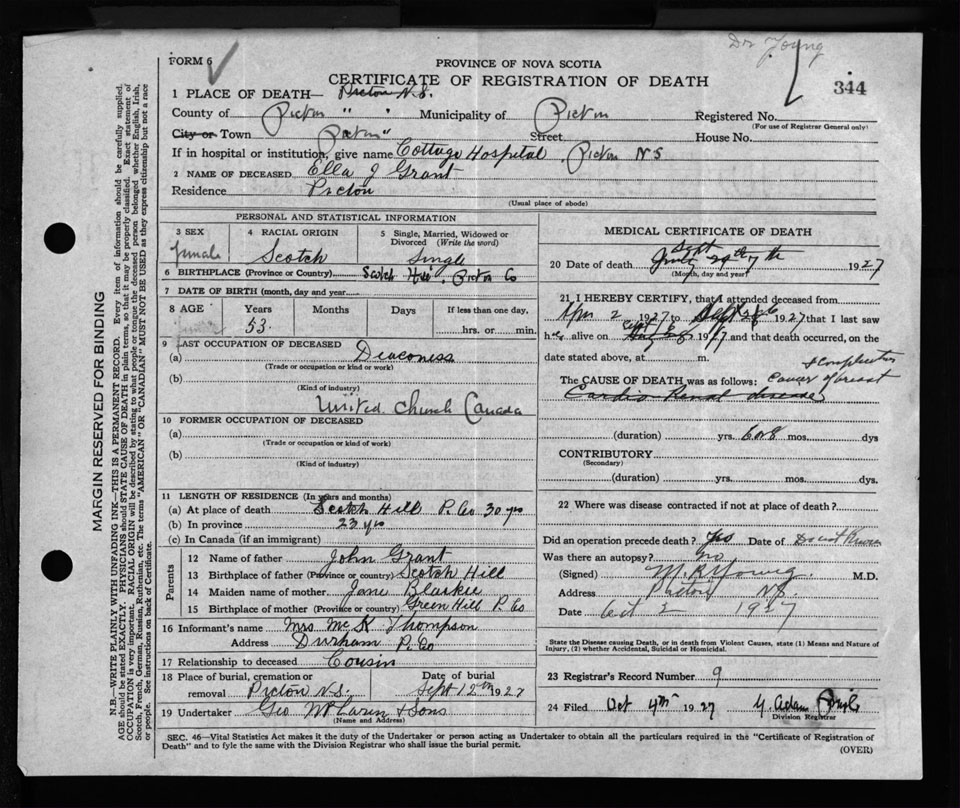 Dr Young
FORM 6
PROVINCE OF NOVA SCOTIA
CERTIFICATE OF REGISTRATION OF DEATH
344
1 PLACE OF DEATH— Pictou N.S.
County of Pictou " " Municipality of Pictou Registered No.
(For use of Registrar General only)
City or Town Pictou " Street House No.
If in hospital or institution, give name Cottage Hospital Pictou N S
2 NAME OF DECEASED Ella J Grant
Residence Pictou
(Usual place of abode)
PERSONAL AND STATISTICAL INFORMATION
3 SEX female
4 RACIAL ORIGIN Scotch
5 Single, Married, Widowed or Divorced (Write the word) Single
6 BIRTHPLACE (Province or Country) Scotch Hill, Pictou Co
7 DATE OF BIRTH (month, day and year)
8 AGE Years 53 Months Days If less than one day, hrs. or min.
9 LAST OCCUPATION OF DECEASED
(a) Deaconess
(Trade or occupation or kind or work)
(b)
(Kind of industry)
United Church Canada
10 FORMER OCCUPATION OF DECEASED
(a)
(Trade or occupation or kind of work)
(b)
(Kind of industry)
11 LENGTH OF RESIDENCE (In years and months)
(a) At place of death Scotch Hill P. Co 30 yrs
(b) In province 23 yrs
(c) In Canada (if an immigrant)
Parents
12 Name of father John Grant
13 Birthplace of father (Province or country) Scotch Hill
14 Maiden name of mother Jane Blaikie
15 Birthplace of mother (Province or country) Green Hill P. Co
16 Informant's name Mrs Mc K Thompson
Address Durham P. Co
17 Relationship to deceased Cousin
18 Place of burial, cremation or removal Pictou N.S. Date of burial Sept 12th 1927
19 Undertaker Geo McLaren & Sons
(Name and Address)
MEDICAL CERTIFICATE OF DEATH
20 Date of death Sept 7th 1927
(Month, day and year)
21 I HEREBY CERTIFY, that I attended deceased from
2 1927 to Sept 6 1927 that I last saw
her alive on Sept 6 1927 and that death occurred, on the
date stated above, at m.
The CAUSE OF DEATH was as follows: Cancer of breast
Cardio Renal disease
(duration) yrs. 6 or 8 mos. dys
CONTRIBUTORY
(Secondary)
(duration) yrs. mos. dys.
22 Where was disease contracted if not at place of death?
Did an operation precede death? Yes Date of Do not Know
Was there an autopsy? no
(Signed) M R Young M.D.
Address Pictou N.S.
Date Oct 2 1927
State the Disease causing Death, or in death from Violent Causes, state (1) Means and Nature of Injury, (2) whether Accidental, Suicidal or Homicidal.
23 Registrar's Record Number 9
24 Filed Oct 4th 1927 Y. Adam
Division Registrar
SEC. 46—Vital Statistics Act makes it the duty of the Undertaker or person acting as Undertaker to obtain all the particulars required in the "Certificate of Registration of
Death" and to fyle the same with the Division Registrar who shall issue the burial permit.
(OVER)
MARGIN RESERVED FOR BINDING
N.B.—WRITE PLAINLY WITH UNFADING INK—THIS IS A PERMANENT RECORD. Every item of information should be carefully supplied.
AGE should be stated EXACTLY. PHYSICIANS should STATE CAUSE OF DEATH in plain terms, so that it may be properly classified. Exact statement of
OCCUPATION is very important. RACIAL ORIGIN will be described by stating to what people or tongue the deceased person belonged whether English, Irish,
Scotch, French, German, Russian, Ruthenian, etc. The terms "AMERICAN" OR "CANADIAN" MUST NOT BE USED as they express citizenship but not a race
or people. See instructions on back of Certificate.